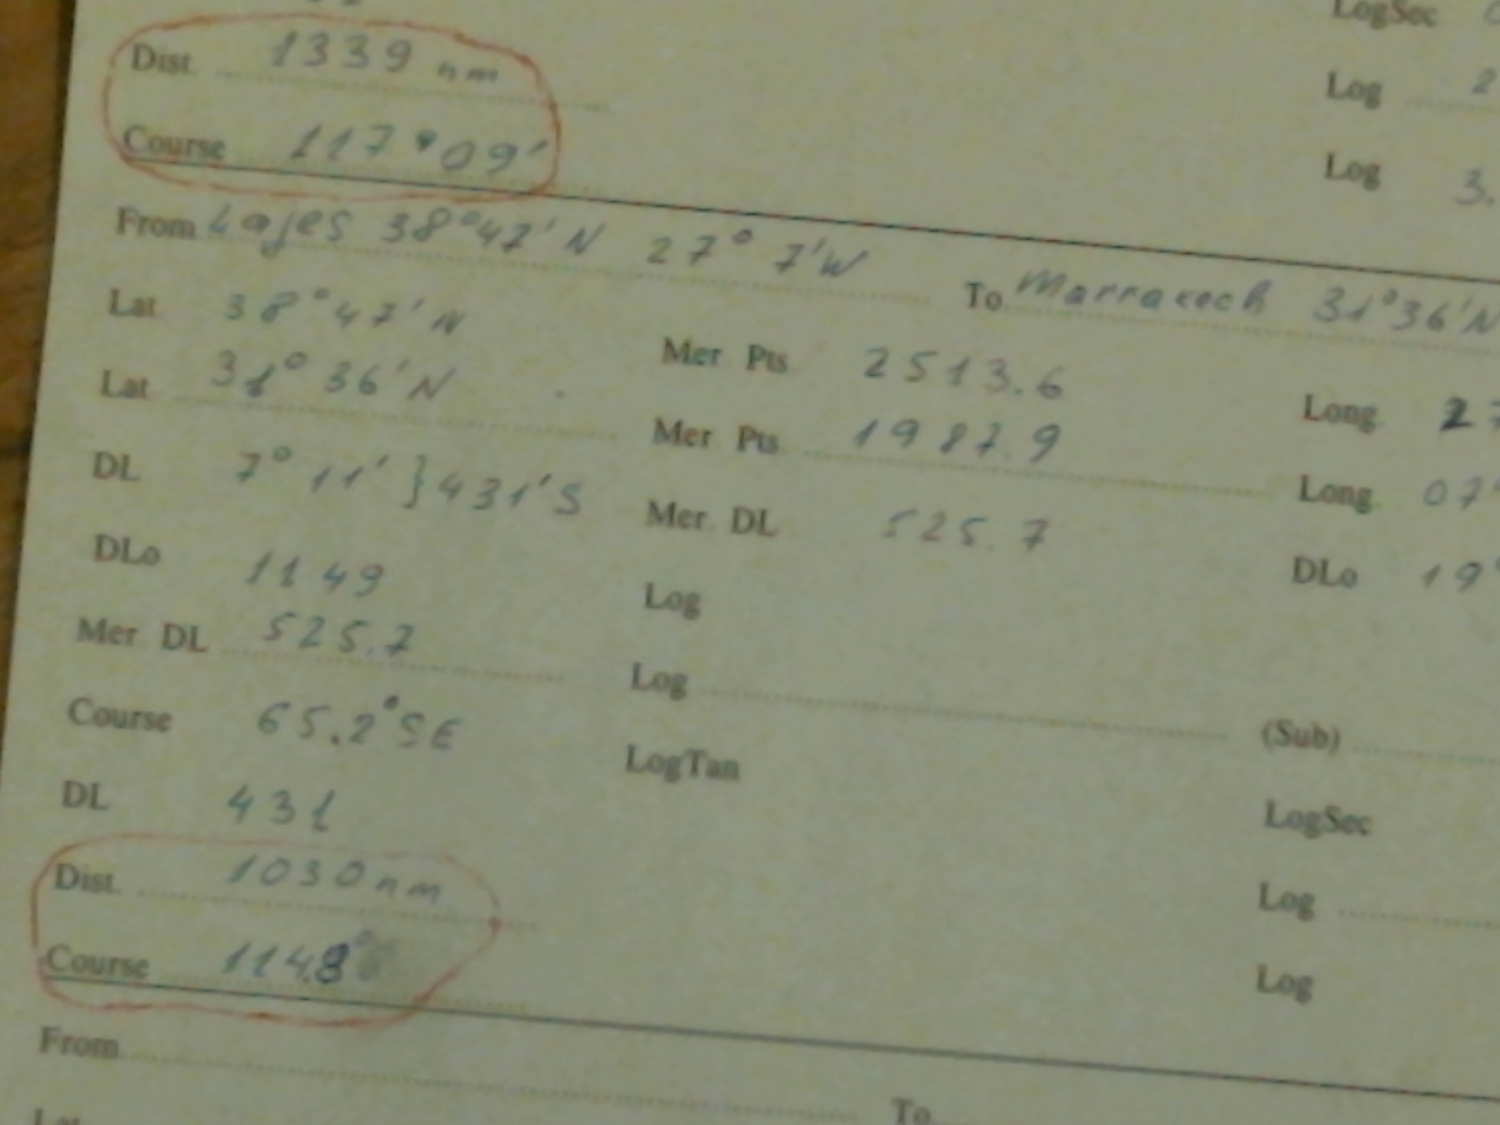 LogSec
Dist 1339 nm
Log 2
Course 117°09'
Log 3.
From Lajes 38°47'N 27° 7'W To Marrakech 31°36'N
Lat 38°47'N Mer Pts 2513.6 Long 27
Lat 31°36'N Mer Pts 1987.9 Long 07°
DL 7° 11' } 431'S Mer DL 525.7 DLo 19°
DLo 1149 Log
Mer DL 525.7 Log (Sub)
Course 65.2°SE LogTan LogSec
DL 431
Dist. 1030nm Log
Course 114.8° Log
From To
Lat